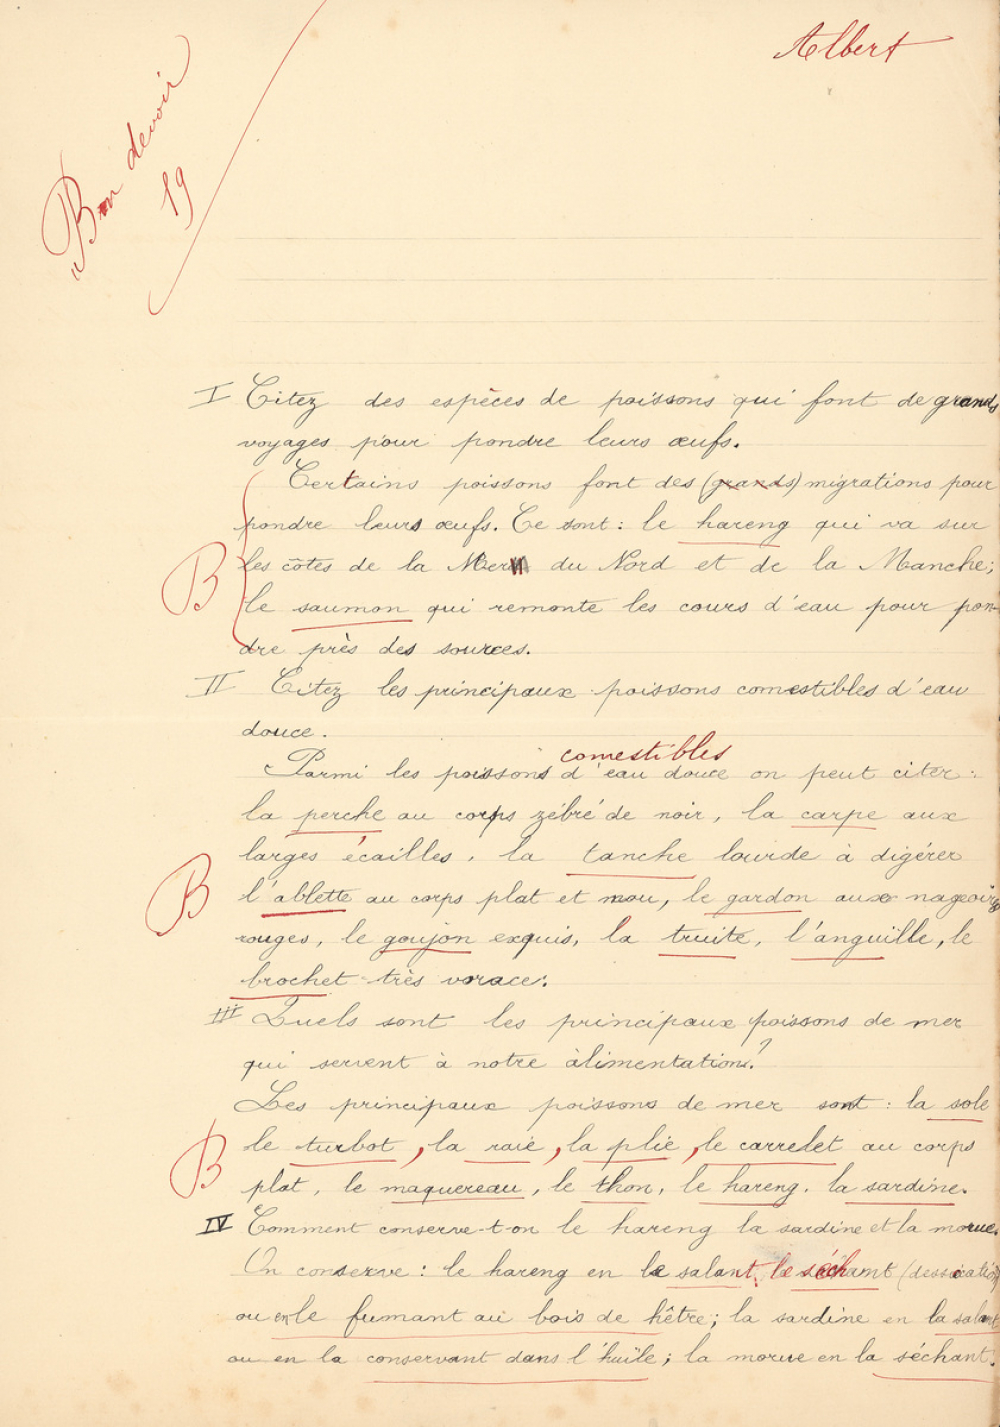 Albert
Bon devoir
19
I Citez des espèces de poissons qui font de grands
voyages pour pondre leurs œufs.
Certains poissons font des (grands) migrations pour
pondre leurs œufs. Ce sont : le hareng qui va sur
les côtes de la Mer du Nord et de la Manche;
le saumon qui remonte les cours d'eau pour pon-
dre près des sources.
B
II Citez les principaux poissons comestibles d'eau
douce.
comestibles
Parmi les poissons d'eau douce on peut citer :
la perche au corps zébré de noir, la carpe aux
larges écailles, la tanche lourde à digérer
l'ablette au corps plat et mou, le gardon aux nageoires
rouges, le goujon exquis, la truite, l'anguille, le
brochet très vorace.
B
III Quels sont les principaux poissons de mer
qui servent à notre alimentation?
Les principaux poissons de mer sont : la sole
le turbot, la raie, la plie, le carrelet au corps
plat, le maquereau, le thon, le hareng, la sardine.
B
IV Comment conserve-t-on le hareng la sardine et la morue.
On conserve : le hareng en le salant, le séchant (dessication)
ou en le fumant au bois de hêtre; la sardine en la salant
ou en la conservant dans l'huile; la morue en la séchant.